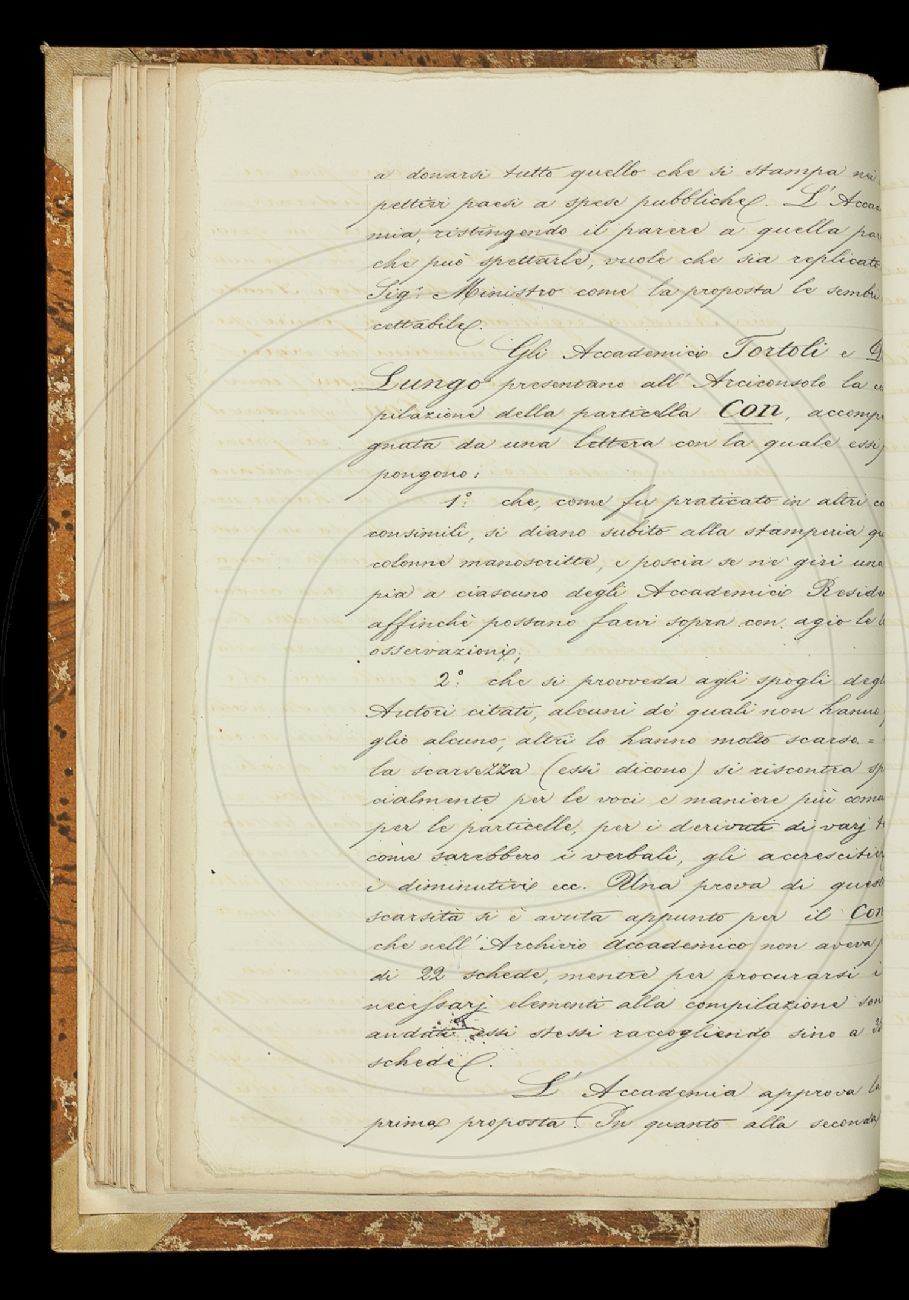 a donarsi tutto quello che si stampa nei
pettivi paesi a spese pubbliche. L' Acca
mia, ristringendo il parere a quella par
che può spettarle, vuole che sia replicato
Sig.r Ministro come la proposta le sembri
cettabile.
Gli Accademici Tortoli e D
Lungo presentano all' Arciconsolo la co
pilazione della particella Con, accompa
gnata da una lettera con la quale essi p
pongono:
1.° che, come fu praticato in altri ca
consimili, si diano subito alla stamperia qu
colonne manoscritte, e poscia se ne giri una
pia a ciascuno degli Accademici Reside
affinchè possano farvi sopra con agio le l
osservazioni;
2.° che si provveda agli spogli degl
Autori citati, alcuni de' quali non hanno
glio alcuno, altri lo hanno molto scarso. =
la scarsezza (essi dicono) si riscontra sp
cialmente per le voci e maniere più coma
per le particelle, per i derivati di varj
come sarebbero i verbali, gli accrescitivi
i diminutivi ecc. Una prova di quest
scarsità si è avuta appunto per il Con
che nell' Archivio accademico non aveva p
di 22 schede, mentre per procurarsi i
necessarj elementi alla compilazione son
andati essi stessi raccogliendo sino a 3
schede.
L' Accademia approva la
prima proposta. In quanto alla seconda